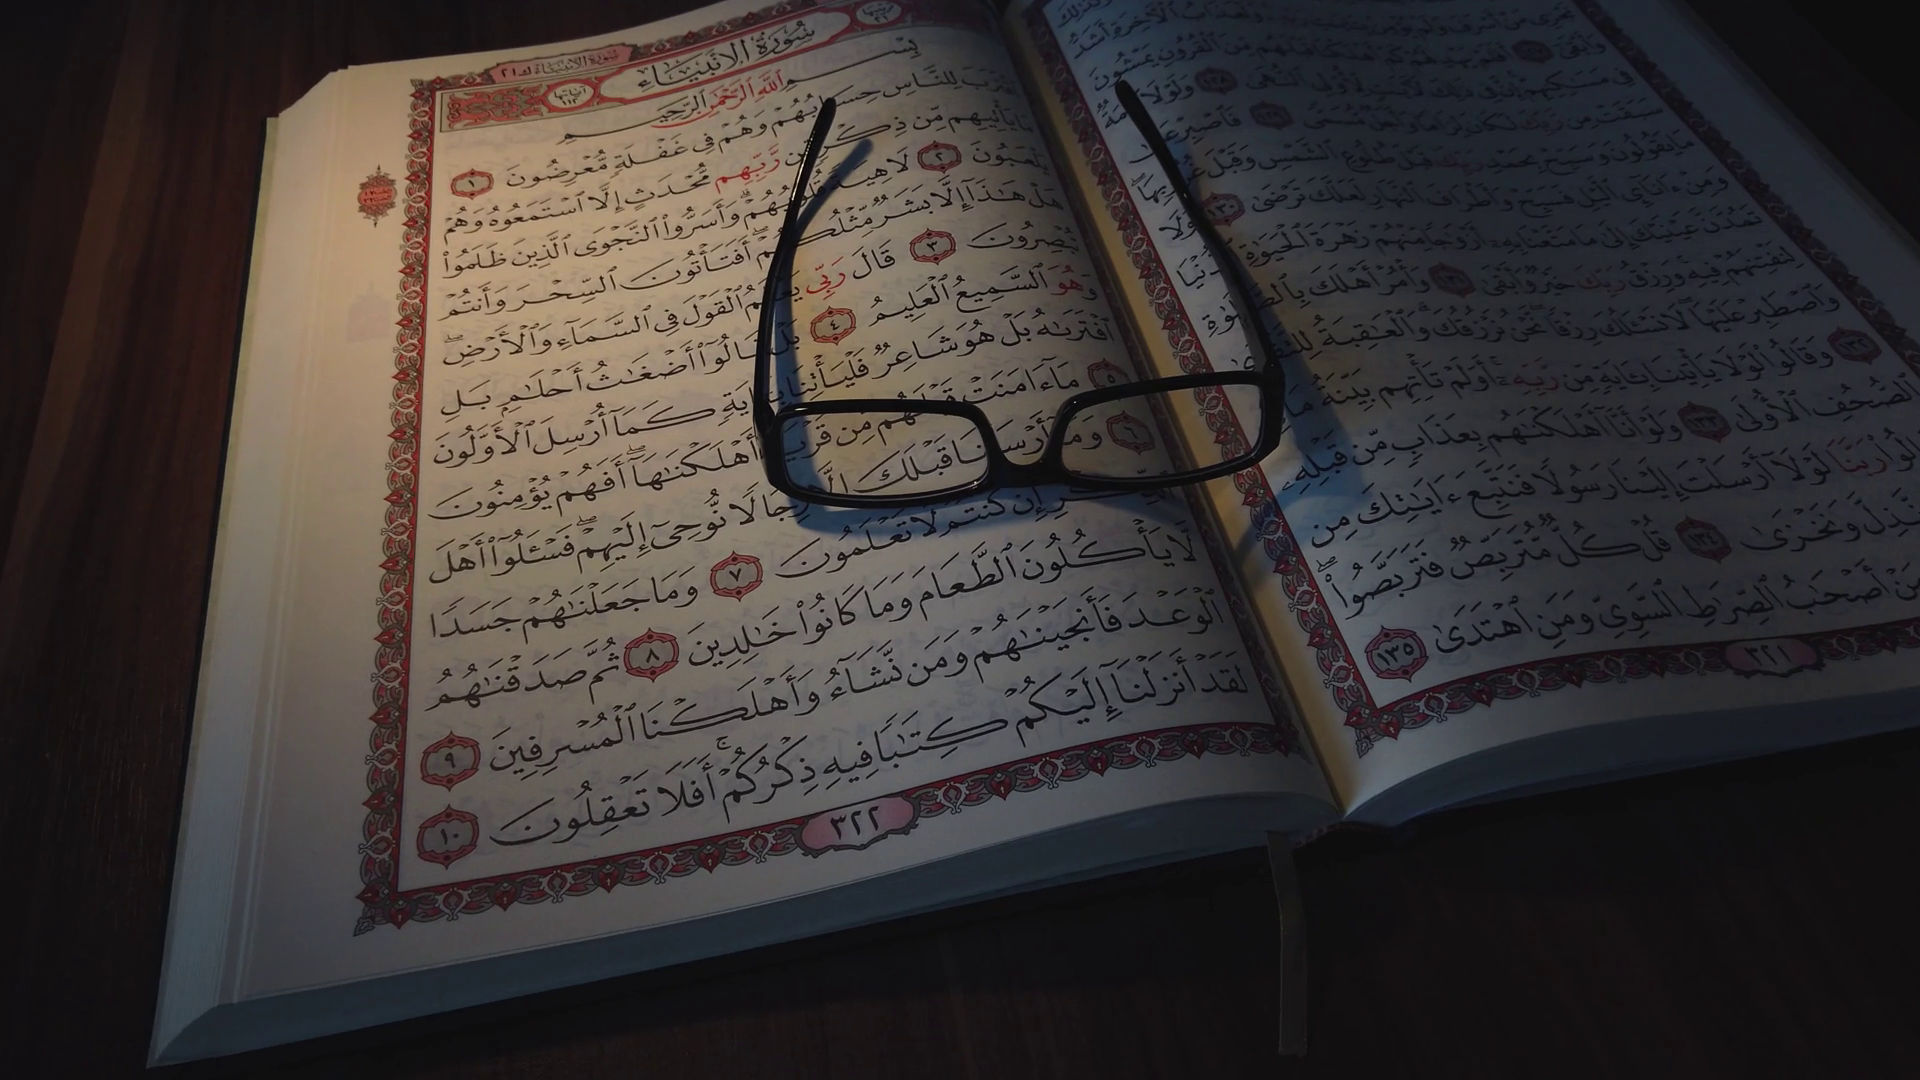 نَجْزِى مَنْ أَسْرَفَ وَلَمْ يُؤْمِنۢ وَلَعَذَابُ ٱلْأَخِرَةِ أَشَدُّ
وَأَبْقَىٰٓ ١٢٧ أَفَلَمْ يَهْدِ لَهُمْ كَمْ أَهْلَكْنَا قَبْلَهُم مِّنَ ٱلْقُرُونِ يَمْشُونَ
فِى مَسَٰكِنِهِمْ إِنَّ فِى ذَٰلِكَ لَءَايَٰتٍ لِّأُو۟لِى ٱلنُّهَىٰ ١٢٨ وَلَوْلَا
سَبَقَتْ مِن رَّبِّكَ لَكَانَ لِزَامًا وَأَجَلٌ مُّسَمًّى ١٢٩ فَٱصْبِرْ
مَا يَقُولُونَ وَسَبِّحْ بِحَمْدِ رَبِّكَ قَبْلَ طُلُوعِ ٱلشَّمْسِ وَقَبْلَ
وَمِنْ ءَانَآئِ ٱلَّيْلِ فَسَبِّحْ وَأَطْرَافَ ٱلنَّهَارِ لَعَلَّكَ تَرْضَىٰ ١٣٠ وَلَا
تَمُدَّنَّ عَيْنَيْكَ إِلَىٰ مَا مَتَّعْنَا بِهِۦٓ أَزْوَٰجًا مِّنْهُمْ زَهْرَةَ ٱلْحَيَوٰةِ ٱلدُّنْيَا
لِنَفْتِنَهُمْ فِيهِ وَرِزْقُ رَبِّكَ خَيْرٌ وَأَبْقَىٰ ١٣١ وَأْمُرْ أَهْلَكَ بِٱلصَّلَوٰةِ
وَٱصْطَبِرْ عَلَيْهَا لَا نَسْـَٔلُكَ رِزْقًا نَّحْنُ نَرْزُقُكَ وَٱلْعَٰقِبَةُ لِلتَّقْوَىٰ
١٣٢ وَقَالُوا۟ لَوْلَا يَأْتِينَا بِـَٔايَةٍ مِّن رَّبِّهِۦٓ أَوَلَمْ تَأْتِهِم بَيِّنَةُ مَا
ٱلصُّحُفِ ٱلْأُولَىٰ ١٣٣ وَلَوْ أَنَّآ أَهْلَكْنَٰهُم بِعَذَابٍ مِّن قَبْلِهِۦ
رَبَّنَا لَوْلَآ أَرْسَلْتَ إِلَيْنَا رَسُولًا فَنَتَّبِعَ ءَايَٰتِكَ مِن
نَّذِلَّ وَنَخْزَىٰ ١٣٤ قُلْ كُلٌّ مُّتَرَبِّصٌ فَتَرَبَّصُوا۟ۖ
مَنْ أَصْحَٰبُ ٱلصِّرَٰطِ ٱلسَّوِىِّ وَمَنِ ٱهْتَدَىٰ ١٣٥
٣٢١
سُورَةُ الأنبياء
سُورَةُ الأَنبِيَاءِ
آياتها ١١٢
بِسْمِ ٱللَّهِ ٱلرَّحْمَٰنِ ٱلرَّحِيمِ
لِلنَّاسِ حِسَابُهُمْ وَهُمْ فِى غَفْلَةٍ مُّعْرِضُونَ ١
مَا يَأْتِيهِم مِّن ذِكْرٍ مِّن رَّبِّهِم مُّحْدَثٍ إِلَّا ٱسْتَمَعُوهُ وَهُمْ
يَلْعَبُونَ ٢ لَاهِيَةً قُلُوبُهُمْۗ وَأَسَرُّوا۟ ٱلنَّجْوَى ٱلَّذِينَ ظَلَمُوا۟
هَلْ هَٰذَآ إِلَّا بَشَرٌ مِّثْلُكُمْۖ أَفَتَأْتُونَ ٱلسِّحْرَ وَأَنتُمْ
تُبْصِرُونَ ٣ قَالَ رَبِّى يَعْلَمُ ٱلْقَوْلَ فِى ٱلسَّمَآءِ وَٱلْأَرْضِۖ
وَهُوَ ٱلسَّمِيعُ ٱلْعَلِيمُ ٤ بَلْ قَالُوٓا۟ أَضْغَٰثُ أَحْلَٰمٍۭ بَلِ
ٱفْتَرَىٰهُ بَلْ هُوَ شَاعِرٌ فَلْيَأْتِنَا بِـَٔايَةٍ كَمَآ أُرْسِلَ ٱلْأَوَّلُونَ
٥ مَآ ءَامَنَتْ قَبْلَهُم مِّن قَرْيَةٍ أَهْلَكْنَٰهَآۖ أَفَهُمْ يُؤْمِنُونَ
٦ وَمَآ أَرْسَلْنَا قَبْلَكَ إِلَّا رِجَالًا نُّوحِىٓ إِلَيْهِمْۖ فَسْـَٔلُوٓا۟ أَهْلَ
إِن كُنتُمْ لَا تَعْلَمُونَ ٧ وَمَا جَعَلْنَٰهُمْ جَسَدًا
لَّا يَأْكُلُونَ ٱلطَّعَامَ وَمَا كَانُوا۟ خَٰلِدِينَ ٨ ثُمَّ صَدَقْنَٰهُمُ
ٱلْوَعْدَ فَأَنجَيْنَٰهُمْ وَمَن نَّشَآءُ وَأَهْلَكْنَا ٱلْمُسْرِفِينَ ٩
لَقَدْ أَنزَلْنَآ إِلَيْكُمْ كِتَٰبًا فِيهِ ذِكْرُكُمْۚ أَفَلَا تَعْقِلُونَ ١٠
٣٢٢